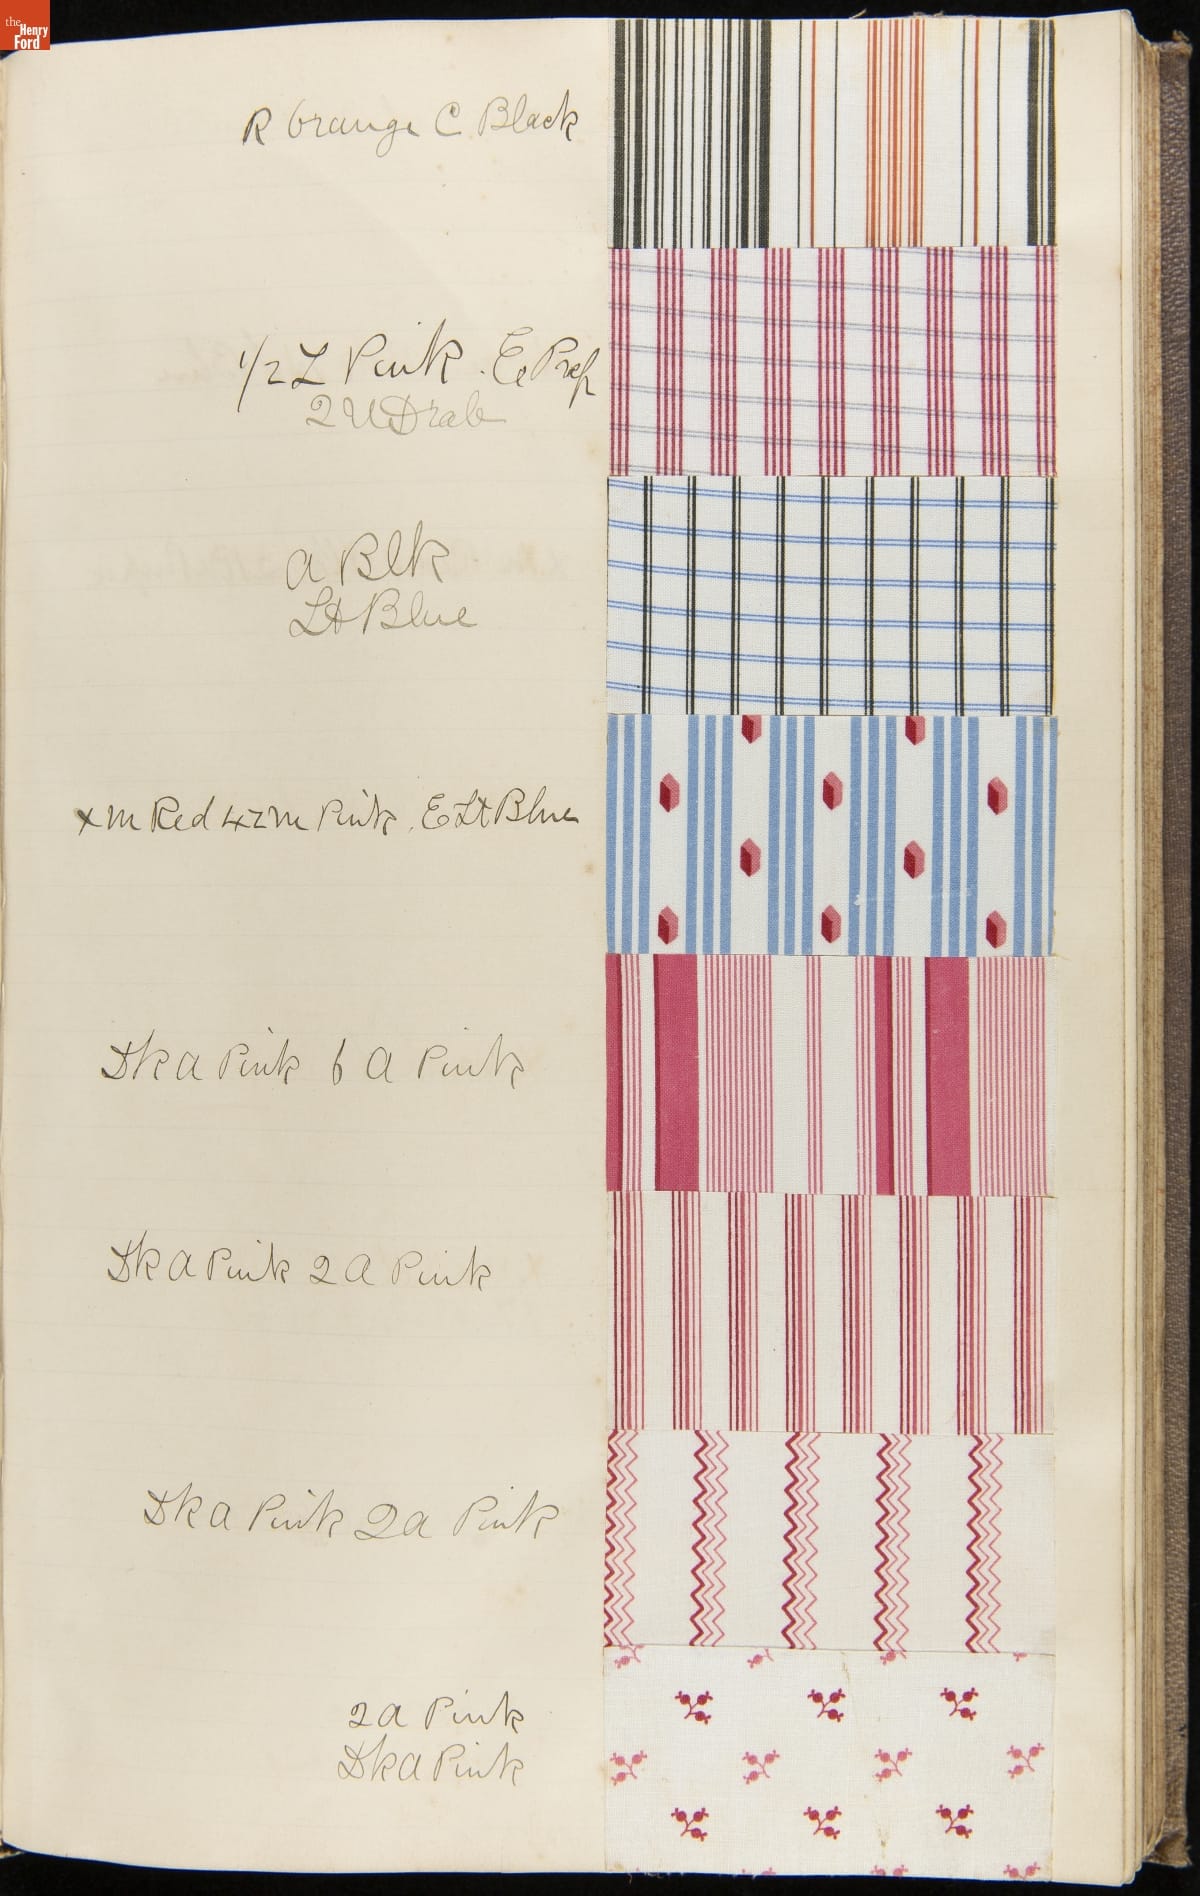 the
Henry
Ford
R Orange C Black
1/2 L Pink . E Prep
2 U Drab
a Blk
Lt Blue
x m Red 4z m Pink . E Lt Blue
Dk a Pink 6 a Pink
Dk a Pink 2 a Pink
Dk a Pink 2a Pink
2a Pink
Dk a Pink